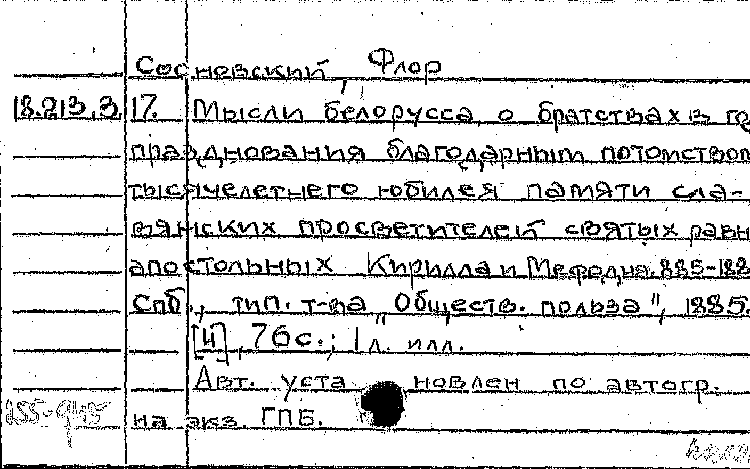 Сосновский, Флор
18.213.3.17. Мысли белорусса о братствах в го
празднования благодарным потомством
тысячелетнего юбилея памяти сла-
вянских просветителей святых равн
апостольных Кирилла и Мефодия. 885-188
Спб., тип. т-ва „Обществ. польза", 1885.
[4], 76 с.; 1 л. илл.
Авт. уста новлен по автогр.
на экз. ГПБ.